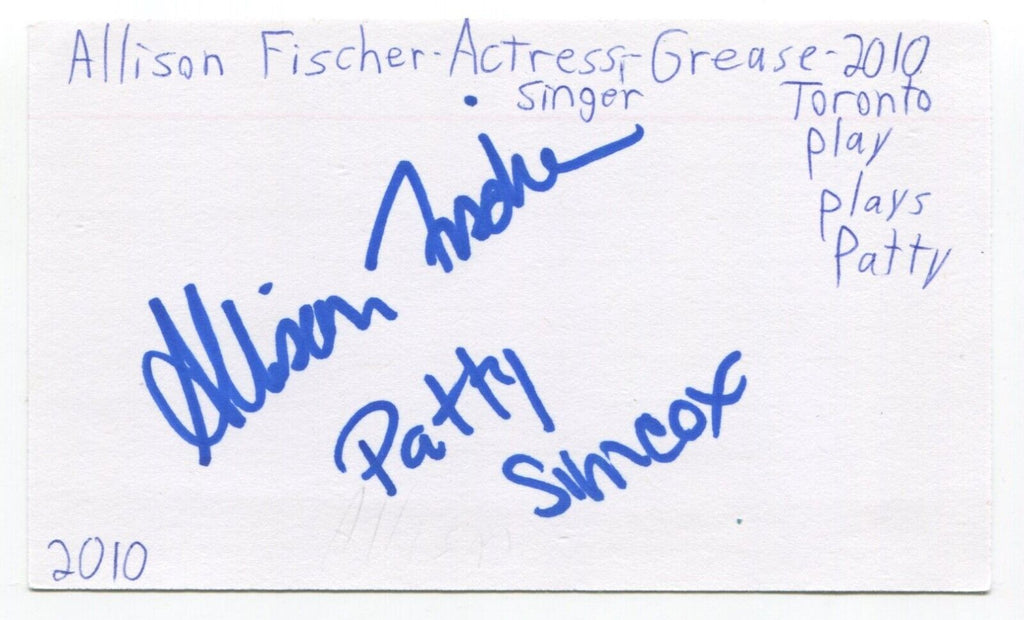 Allison Fischer-Actress,-Grease-2010
singer Toronto
play
plays
Patty
Allison Fische
Patty
Simcox
Allison
2010